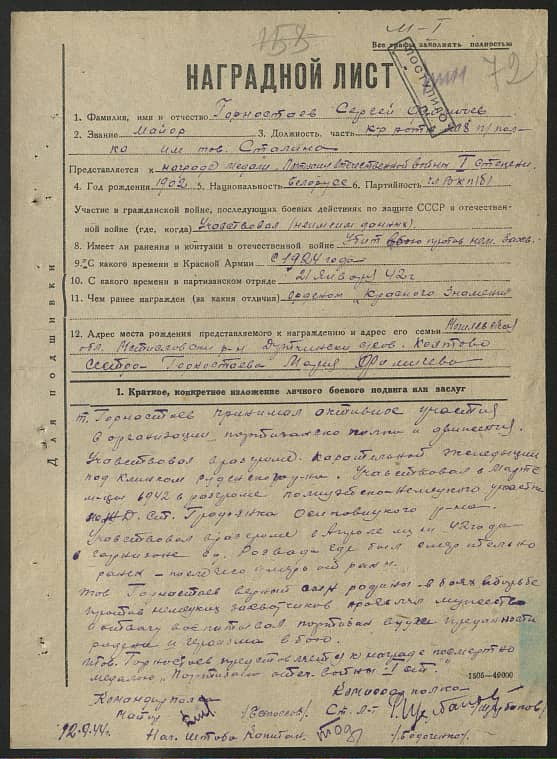 М-I
158
Все графы заполнять полностью
72
НАГРАДНОЙ ЛИСТ
1. Фамилия, имя и отчество Горностаев Сергей
2. Звание майор 3. Должность, часть 208 п/пол-
ка им тов. Сталина
Представляется к награде медали Отечественной войны I степени
4. Год рождения 1902 5. Национальность белорус 6. Партийность
Участие в гражданской войне, последующих боевых действиях по защите СССР и отечествен-
ной войне (где, когда) Учавствовал
8. Имеет ли ранения и контузии в отечественной войне Убит против нем. захв.
9. С какого времени в Красной Армии с 1924 года
10. С какого времени в партизанском отряде с 21 января 42 г
11. Чем ранее награжден (за какия отличия) орденом Красного Знамени
12. Адрес места рождения представляемого к награждению и адрес его семьи Могилевская
обл. Мстиславский р-н дер. Коптово
сестра Горностаева Мария
Для подшивки
1. Краткое, конкретное изложение личного боевого подвига или заслуг
т. Горностаев принимал активное участия
в организации партизанско полка и движения.
Учавствовал в разгроме карательной экспедиции
под Клинком Руденского р-на. Учавствовал в марте
м-це 1942 в разгроме полицейско-немецкого
ЖД. ст. Осиповицкого р-на.
Учавствовал в разгроме в Апреле м-це 42 года
гарнизона где был смертельно
ранен - после чего умер от ран.
тов Горностаев верный сын родины в боях в борьбе
против немецких захватчиков проявлял мужество
и отвагу воспитывал партизан в духе преданности
родине и героизма в бою.
тов. Горностаев представляется к награде посмертно
медалью "Партизану отеч. войны I ст."
1505—40000
Командир полка Комиссар полка
майор Ст. л-т
12.9.44г. Нач. штаба капитан